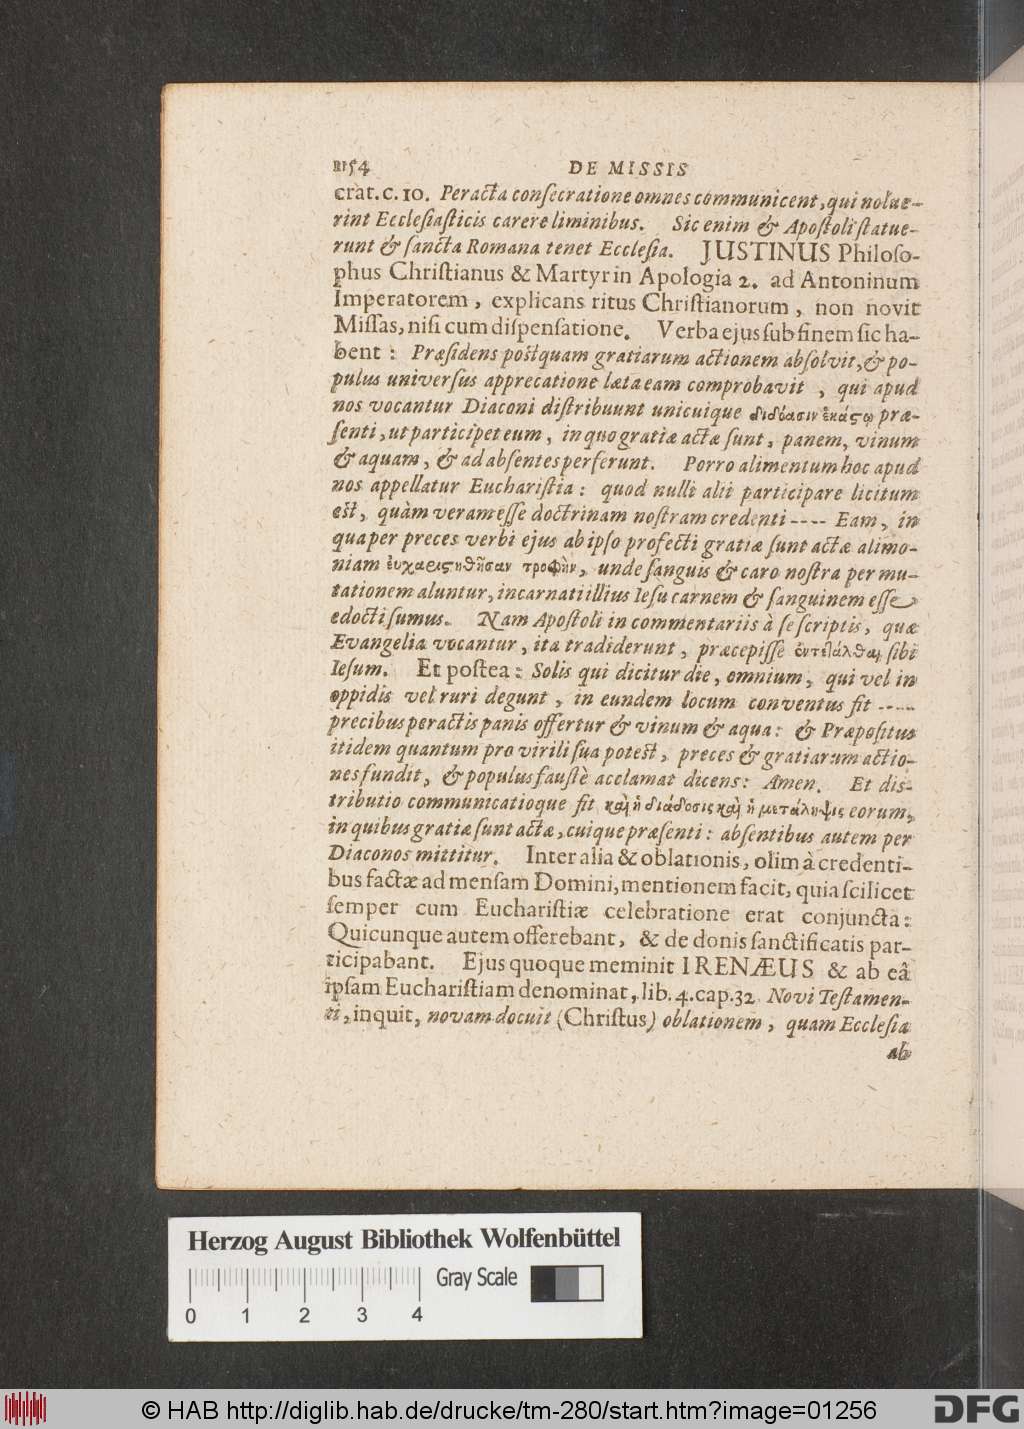 1154 DE MISSIS
crat. c. 10. Peracta consecratione omnes communicent, qui nolue-
rint Ecclesiasticis carere liminibus. Sic enim & Apostoli statue-
runt & sancta Romana tenet Ecclesia. JUSTINUS Philoso-
phus Christianus & Martyr in Apologia 2. ad Antoninum
Imperatorem, explicans ritus Christianorum, non novit
Missas, nisi cum dispensatione. Verba ejus sub finem sic ha-
bent: Præsidens postquam gratiarum actionem absolvit, & po-
pulus universus apprecatione læta eam comprobavit, qui apud
nos vocantur Diaconi distribuunt unicuique διδόασιν ἑκάςῳ præ-
senti, ut participet eum, in quo gratiæ actæ sunt, panem, vinum
& aquam, & ad absentes perferunt. Porro alimentum hoc apud
nos appellatur Eucharistia: quod nulli alii participare licitum
est, quàm veram esse doctrinam nostram credenti ---- Eam, in
qua per preces verbi ejus ab ipso profecti gratiæ sunt actæ alimo-
niam ἐυχαριςηθῆσαν τροφὴν, unde sanguis & caro nostra per mu-
tationem aluntur, incarnati illius Iesu carnem & sanguinem esse
edocti sumus. Nam Apostoli in commentariis à se scriptis, quæ
Evangelia vocantur, ita tradiderunt, præcepisse ἐντετάλθαι sibi
Iesum. Et postea: Solis qui dicitur die, omnium, qui vel in
oppidis vel ruri degunt, in eundem locum conventus fit -----
precibus peractis panis offertur & vinum & aqua: & Præpositus
itidem quantum pro virili sua potest, preces & gratiarum actio-
nes fundit, & populus faustè acclamat dicens: Amen. Et dis-
tributio communicatioque fit καὶ ἡ διάδοσις καὶ ἡ μετάληψις eorum,
in quibus gratiæ sunt actæ, cuique præsenti: absentibus autem per
Diaconos mittitur. Inter alia & oblationis, olim à credenti-
bus factæ ad mensam Domini, mentionem facit, quia scilicet
semper cum Eucharistiæ celebratione erat conjuncta:
Quicunque autem offerebant, & de donis sanctificatis par-
ticipabant. Ejus quoque meminit IRENÆUS & ab eâ
ipsam Eucharistiam denominat, lib. 4. cap. 32 Novi Testamen-
ti, inquit, novam docuit (Christus) oblationem, quam Ecclesia
ab
Herzog August Bibliothek Wolfenbüttel
Gray Scale
0 1 2 3 4
© HAB http://diglib.hab.de/drucke/tm-280/start.htm?image=01256
DFG